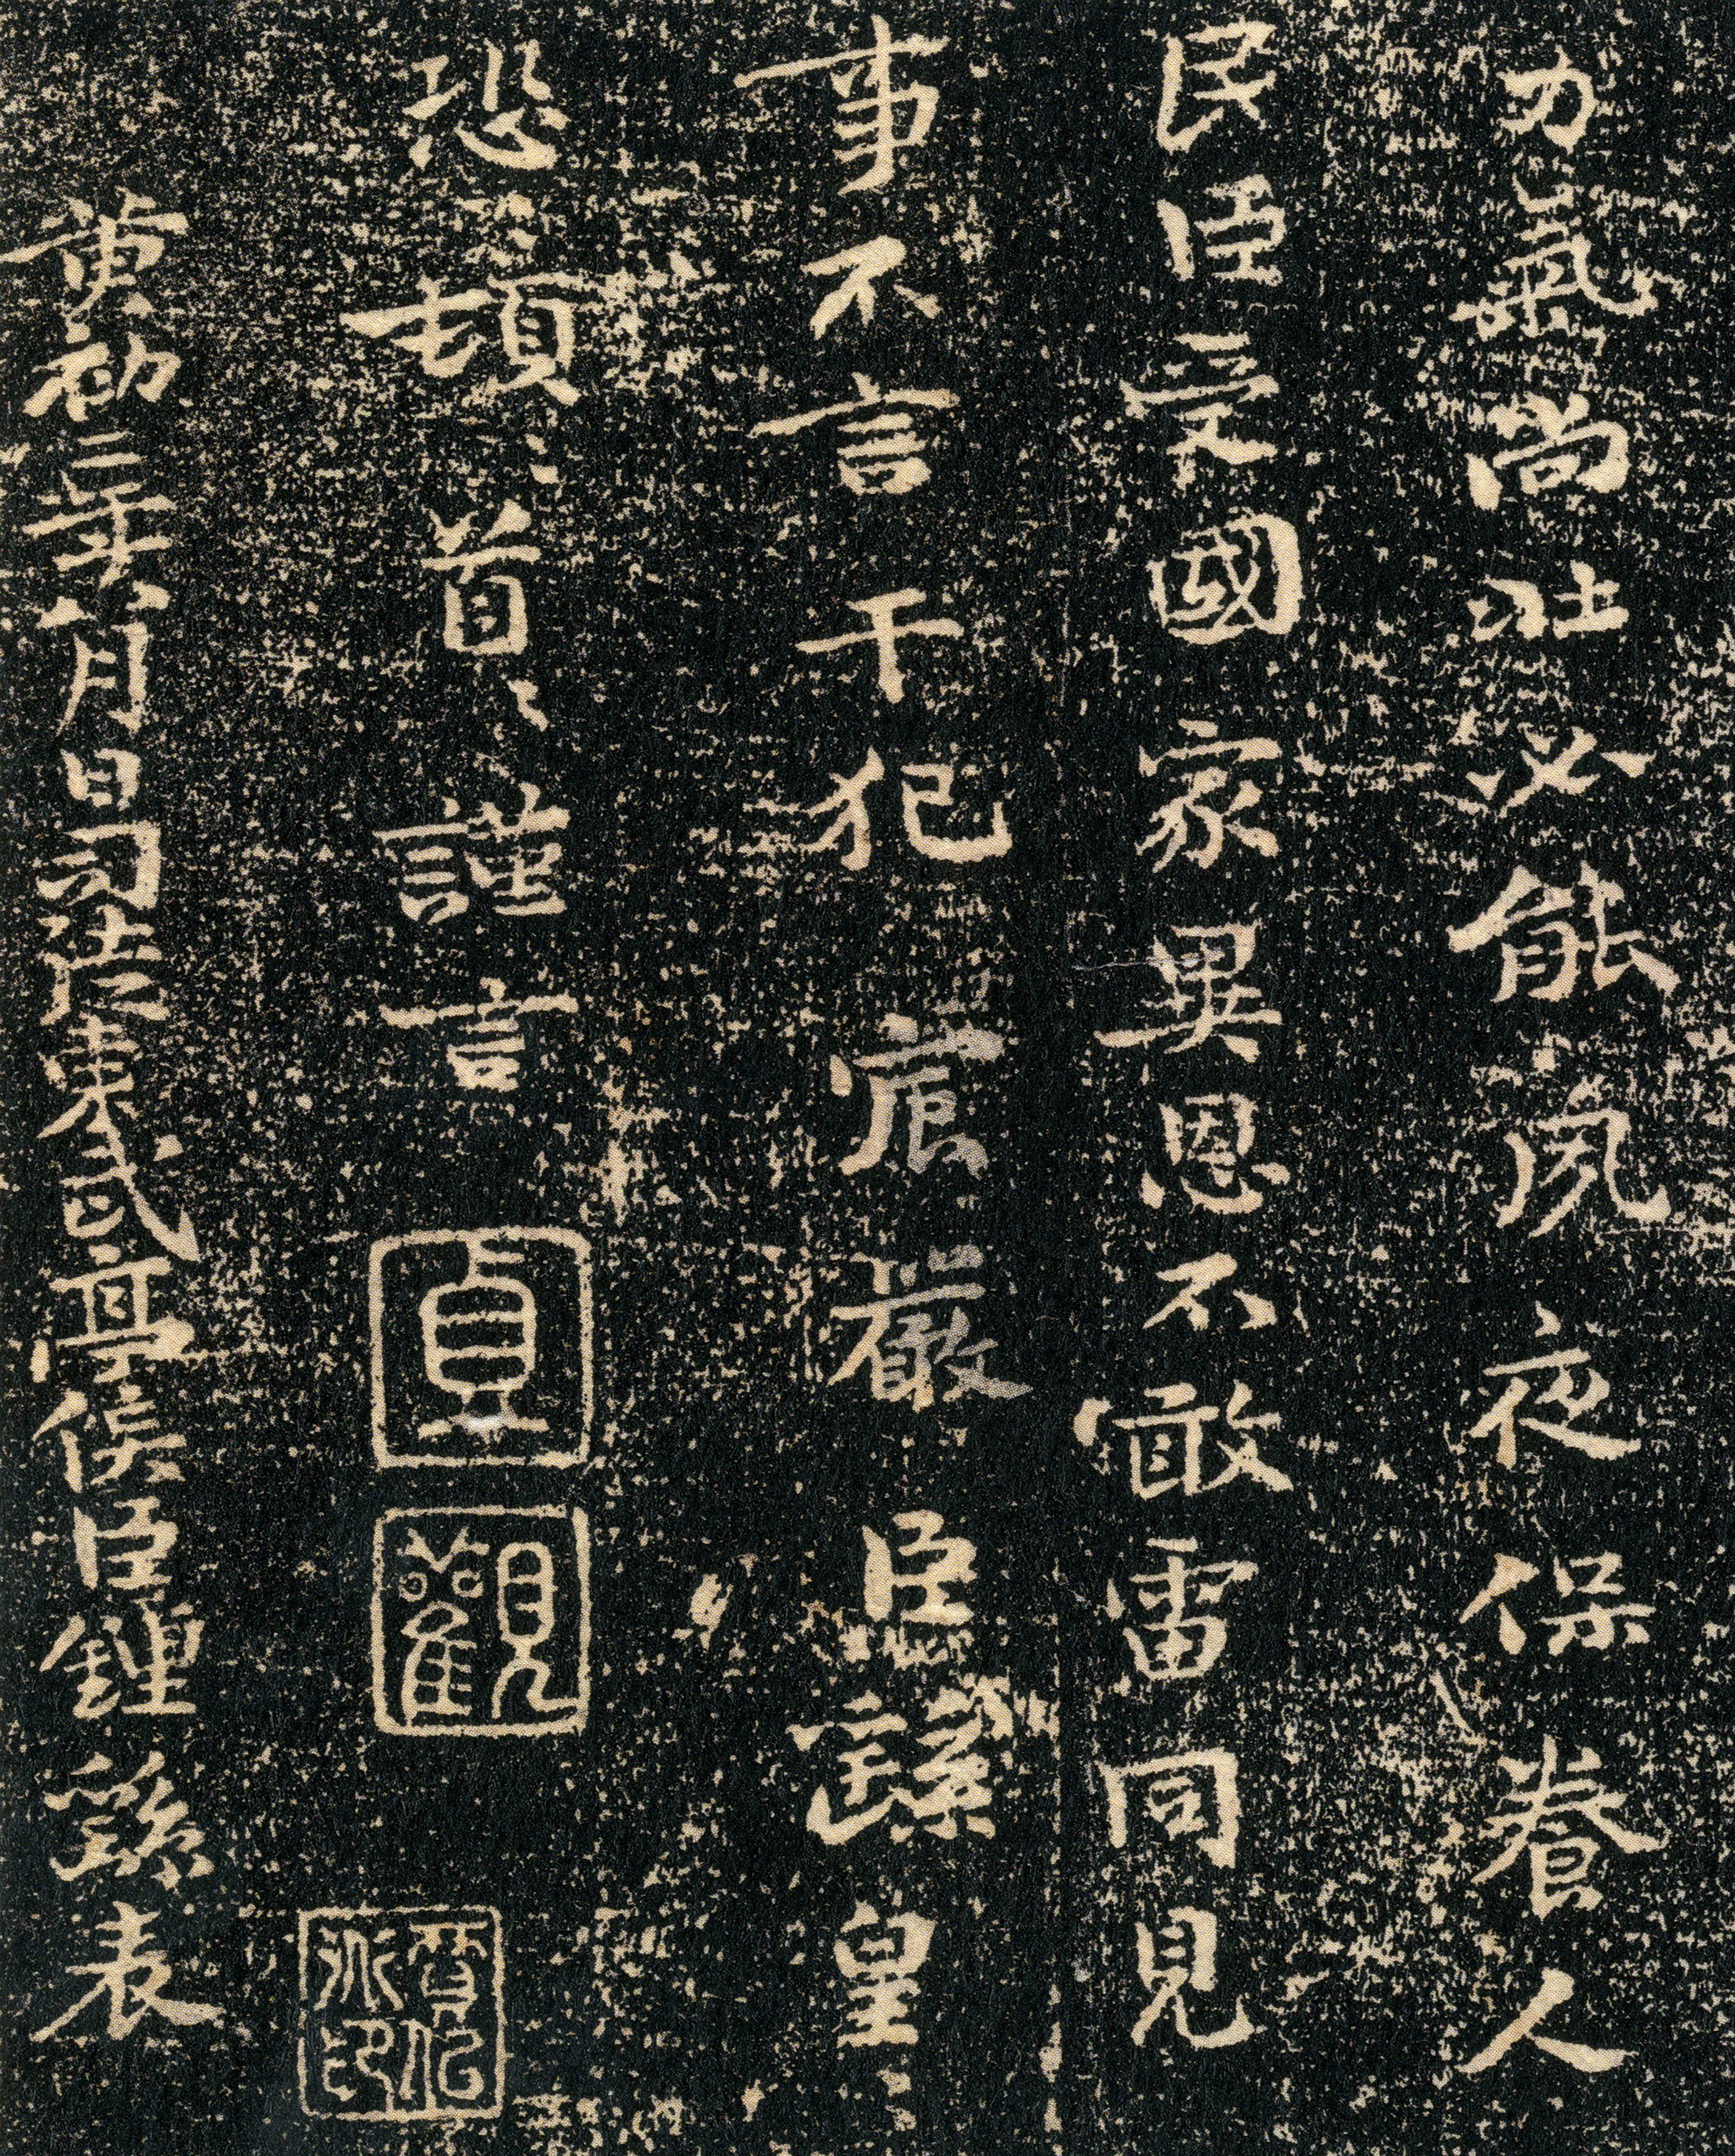 力氣尚壯必能夙夜保養人
民臣受國家異恩不敢雷同見
事不言干犯宸嚴臣繇皇〻
恐〻頓〻首〻謹言
貞
觀
黃初二年八月日司徒東武亭侯臣鍾繇表